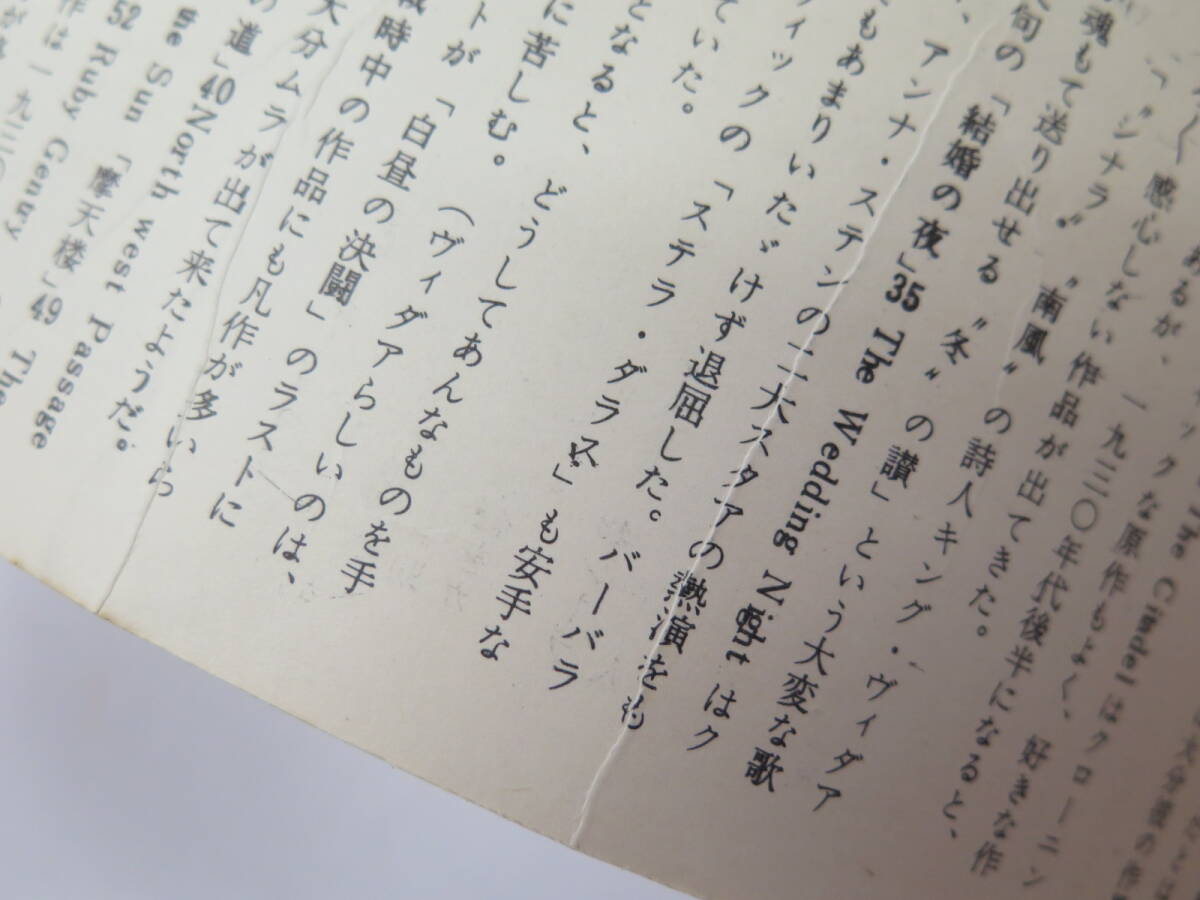 大分後の作
The Citadel はクローニン
ックな原作もよく、好きな作
あるが、一九三〇年代後半になると、
く感心しない作品が出てきた。
「〝シナラ〟〝南風〟の詩人キング・ヴィダア
魂もて送り出せる〝冬〟の讃」という大変な歌
句の「結婚の夜」35 The Wedding Night はク
、アンナ・ステンの二大スタアの熱演をも
もあまりいたゞけず退屈した。バーバラ
ィックの「ステラ・ダラス」も安手な
ていた。
となると、どうしてあんなものを手
に苦しむ。(ヴィダアらしいのは、
トが「白昼の決闘」のラストに
戦時中の作品にも凡作が多いら
大分ムラが出て来たようだ。
の道」40 North west Passage
the Sun「摩天楼」49 The
52 Ruby Gentry
作は一九三〇